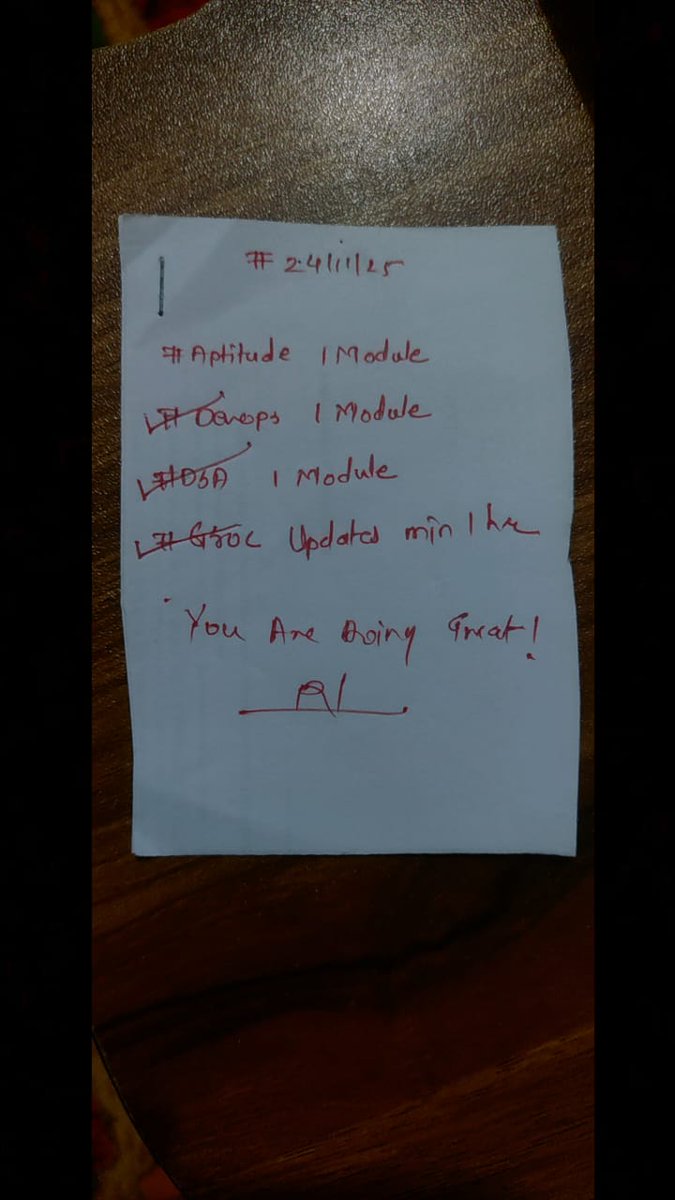 # 24/11/25
# Aptitude 1 Module
# Devops 1 Module
# DSA 1 Module
# GSOC Updates min 1 hr
You Are Doing Great!